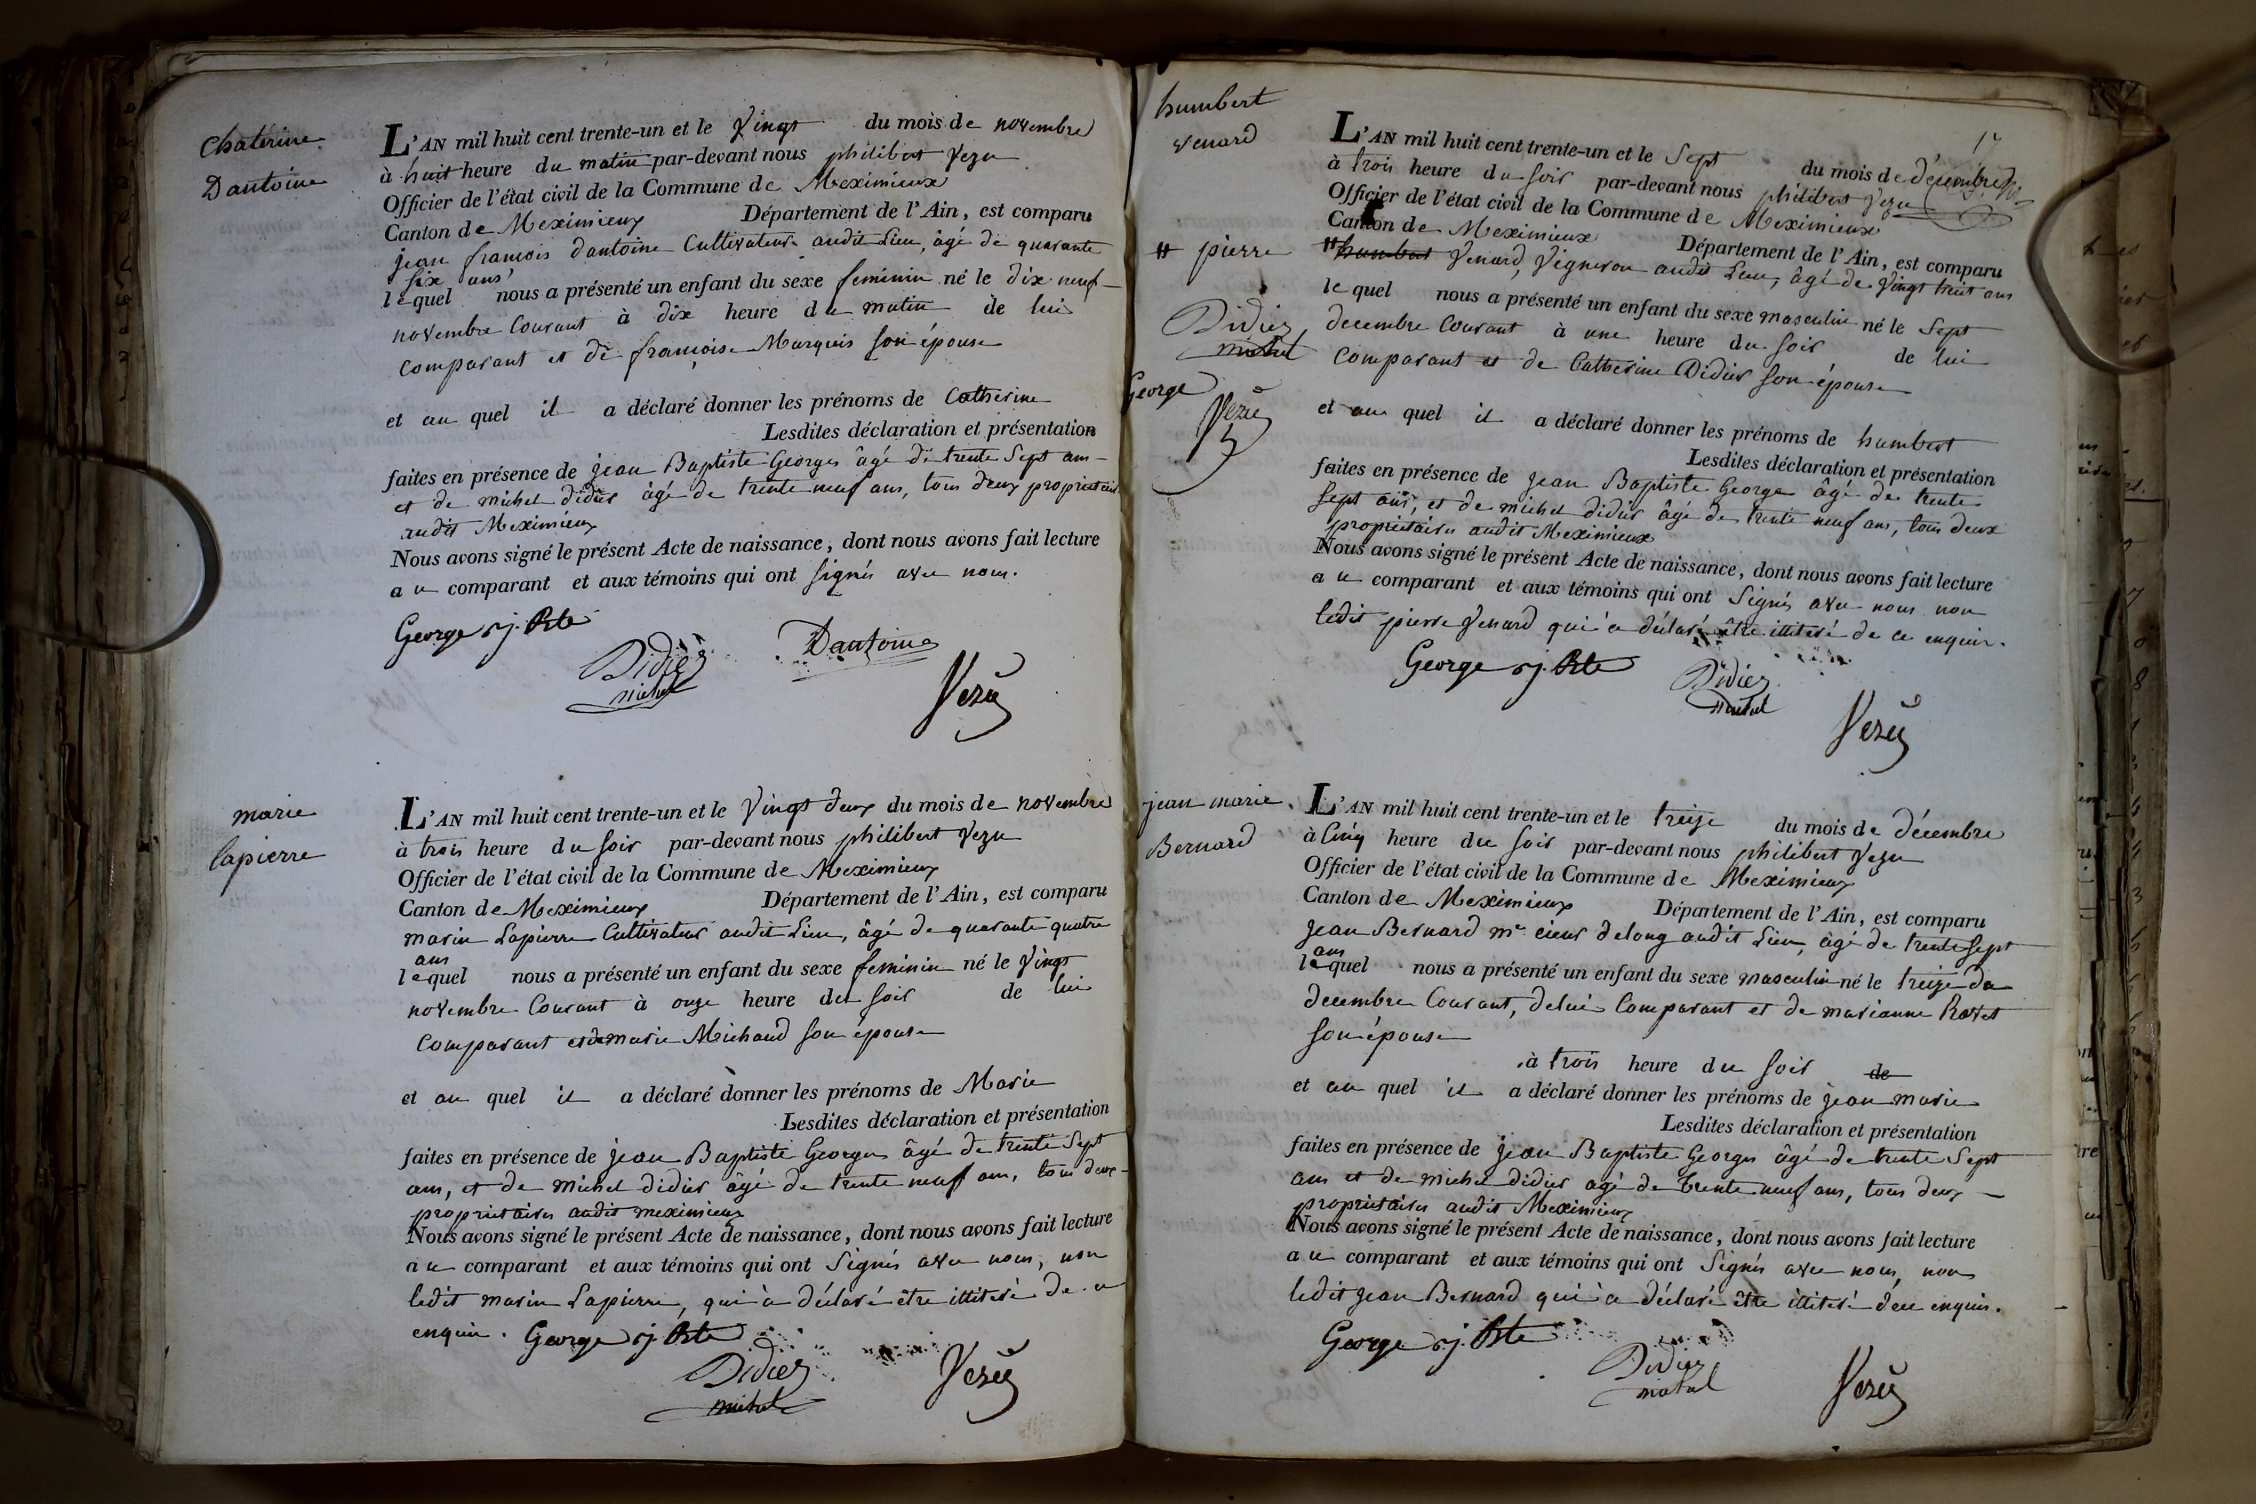 Chatérine
Dantoine
L'AN mil huit cent trente-un et le Vingt du mois de novembre
à huit heure du matin par-devant nous philibert Vezu
Officier de l'état civil de la Commune de Meximieux
Canton de Meximieux Département de l'Ain, est comparu
jean francois dantoine Cultivateur audit Lieu, âgé de quarante
six ans
lequel nous a présenté un enfant du sexe feminin né le dix neuf
novembre Courant à dix heure du matin de lui
comparant et de françoise Marquis son épouse
et au quel il a déclaré donner les prénoms de Catherine
Lesdites déclaration et présentation
faites en présence de jean Baptiste Georges âgé de trente Sept ans
et de michel didier âgé de trente neuf ans, tous deux proprietaires
audit Meximieux
Nous avons signé le présent Acte de naissance, dont nous avons fait lecture
au comparant et aux témoins qui ont signés avec nous.
George j. Bte
Didier
michel
Dantoine
Vezu
marie
lapierre
L'AN mil huit cent trente-un et le Vingt deux du mois de novembre
à trois heure du soir par-devant nous philibert Vezu
Officier de l'état civil de la Commune de Meximieux
Canton de Meximieux Département de l'Ain, est comparu
marin Lapierre Cultivateur audit Lieu, âgé de quarante quatre
ans
lequel nous a présenté un enfant du sexe feminin né le Vingt
novembre Courant à onze heure du soir de lui
Comparant et de marie Michaud son épouse
et au quel il a déclaré donner les prénoms de Marie
Lesdites déclaration et présentation
faites en présence de jean Baptiste Georges âgé de trente Sept
ans, et de michel didier âgé de trente neuf ans, tous deux
proprietaires audit meximieux
Nous avons signé le présent Acte de naissance, dont nous avons fait lecture
au comparant et aux témoins qui ont Signés avec nous, non
ledit marin Lapierre, qui à déclaré être illiteré de ce
enquis. George j. Bte
Didier
michel
Vezu
humbert
venard
17
L'AN mil huit cent trente-un et le Sept du mois de décembre
à trois heure du soir par-devant nous philibert Vezu
Officier de l'état civil de la Commune de Meximieux
Canton de Meximieux Département de l'Ain, est comparu
# pierre
# humbert Venard, Vigneron audit Lieu, âgé de Vingt huit ans
lequel nous a présenté un enfant du sexe masculin né le Sept
Didier
michel
George
Vezu
decembre Courant à une heure du soir de lui
Comparant et de Catherine Didier son épouse
et au quel il a déclaré donner les prénoms de humbert
Lesdites déclaration et présentation
faites en présence de jean Baptiste George âgé de trente
sept ans, et de michel didier âgé de trente neuf ans, tous deux
proprietaires audit Meximieux
Nous avons signé le présent Acte de naissance, dont nous avons fait lecture
au comparant et aux témoins qui ont Signés avec nous non
ledit pierre Venard qui à déclaré être illiteré de ce enquis.
George j. Bte
Didier
michel
Vezu
jean marie
Bernard
L'AN mil huit cent trente-un et le treize du mois de décembre
à Cinq heure du soir par-devant nous philibert Vezu
Officier de l'état civil de la Commune de Meximieux
Canton de Meximieux Département de l'Ain, est comparu
jean Bernard delong audit Lieu, âgé de trente sept
ans
lequel nous a présenté un enfant du sexe masculin né le treize du
decembre Courant, de lui Comparant et de marianne Ravet
son épouse
à trois heure du soir de
et au quel il a déclaré donner les prénoms de jean marie
Lesdites déclaration et présentation
faites en présence de jean Baptiste Georges âgé de trente Sept
ans et de michel didier agé de trente neuf ans, tous deux
proprietaires audit Meximieux
Nous avons signé le présent Acte de naissance, dont nous avons fait lecture
au comparant et aux témoins qui ont Signés avec nous, non
ledit jean Bernard qui à déclaré être illiteré de ce enquis.
George j. Bte
Didier
michel
Vezu